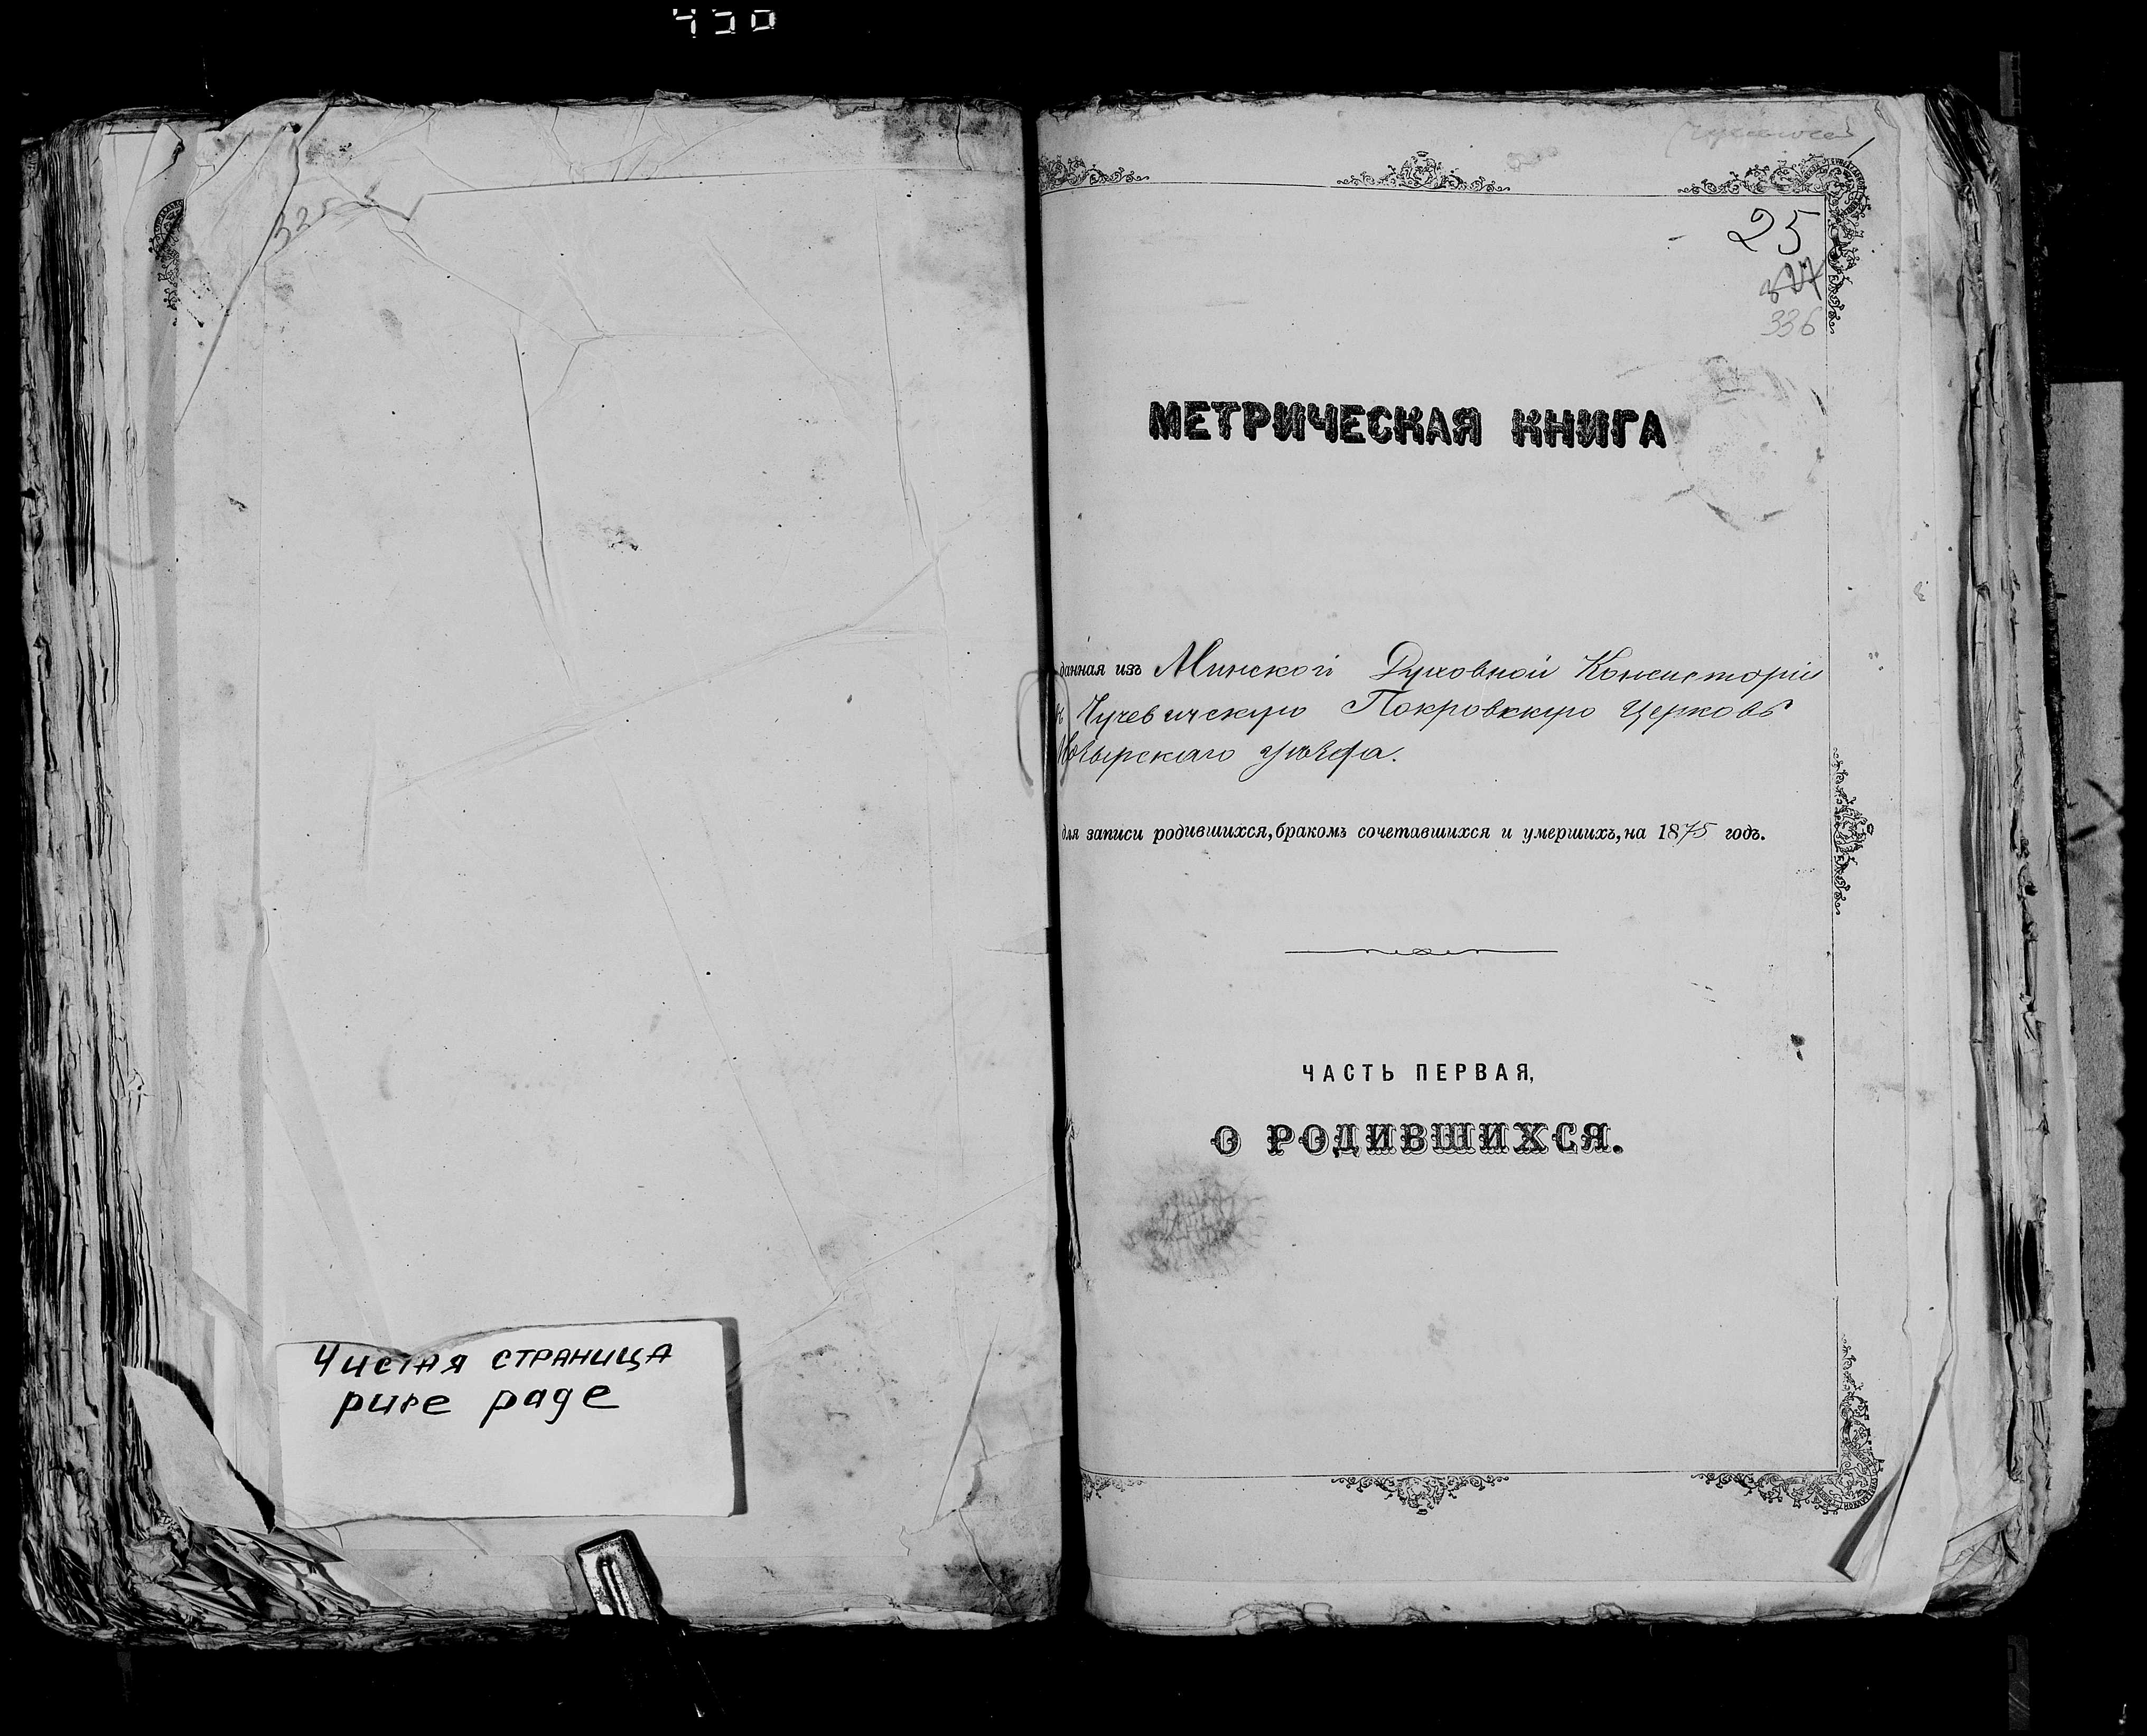 430
335
Чистая страница
pure page
25
327
336
МЕТРИЧЕСКАЯ КНИГА
данная изъ Минской Духовной Консисторіи
въ Чучевичскую Покровскую церковь
Мозырскаго уѣзда.
для записи родившихся, бракомъ сочетавшихся и умершихъ, на 1875 годъ.
ЧАСТЬ ПЕРВАЯ,
О РОДИВШИХСЯ.